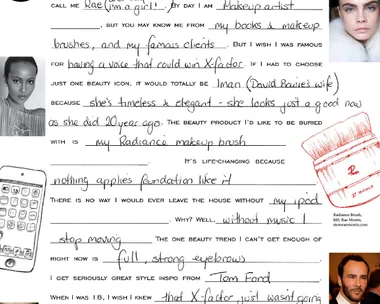 CALL ME Rae (I'm a girl!). BY DAY I AM Makeup artist
, BUT YOU MAY KNOW ME FROM my books & makeup
brushes, and my famous clients. BUT I WISH I WAS FAMOUS
FOR having a voice that could win X-factor. IF I HAD TO CHOOSE
JUST ONE BEAUTY ICON, IT WOULD TOTALLY BE Iman (David Bowie's wife)
BECAUSE she's timeless & elegant - she looks just a good now
as she did 20 year ago. THE BEAUTY PRODUCT I'D LIKE TO BE BURIED
WITH IS my Radiance makeup brush
. IT'S LIFE-CHANGING BECAUSE
nothing applies foundation like it
THERE IS NO WAY I WOULD EVER LEAVE THE HOUSE WITHOUT my ipod
. WHY? WELL, without music I
stop moving THE ONE BEAUTY TREND I CAN'T GET ENOUGH OF
RIGHT NOW IS full, strong eyebrows.
I GET SERIOUSLY GREAT STYLE INSPO FROM Tom Ford
WHEN I WAS 18, I WISH I KNEW that X-factor, just wasn't going
Radiance Brush,
Rae Morris,